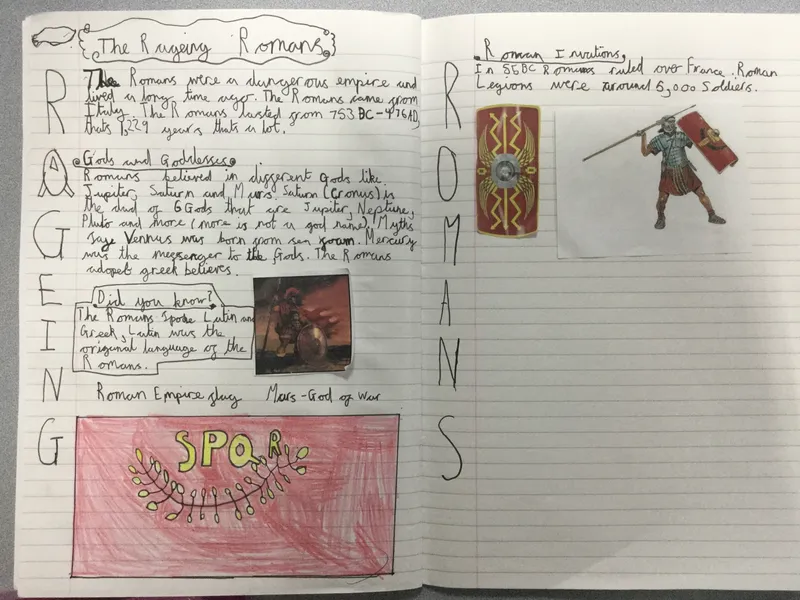 The Rageing Romans
RAGEING
The Romans were a dangerous empire and
lived a long time ago. The Romans came from
Italy. The Romans lasted from 753 BC-476AD,
thats 1,229 years thats a lot.
Gods and Goddesses
Romans believed in different gods like
Jupiter, Saturn and Mars. Saturn (Cronus) is
the dad of 6 Gods that are Jupiter, Neptune,
Pluto and more (more is not a god name). Myths
says Vennus was born from sea foam. Mercury
was the messenger to the Gods. The Romans
adopet greek believes.
Did you know?
The Romans spoke Latin and
Greek, Latin was the
original language of the
Romans.
Roman Empire flag
Mars-God of War
SPQR
ROMANS
Roman Invations
In 55BC Romans ruled over France. Roman
Legions were around 5,000 soldiers.